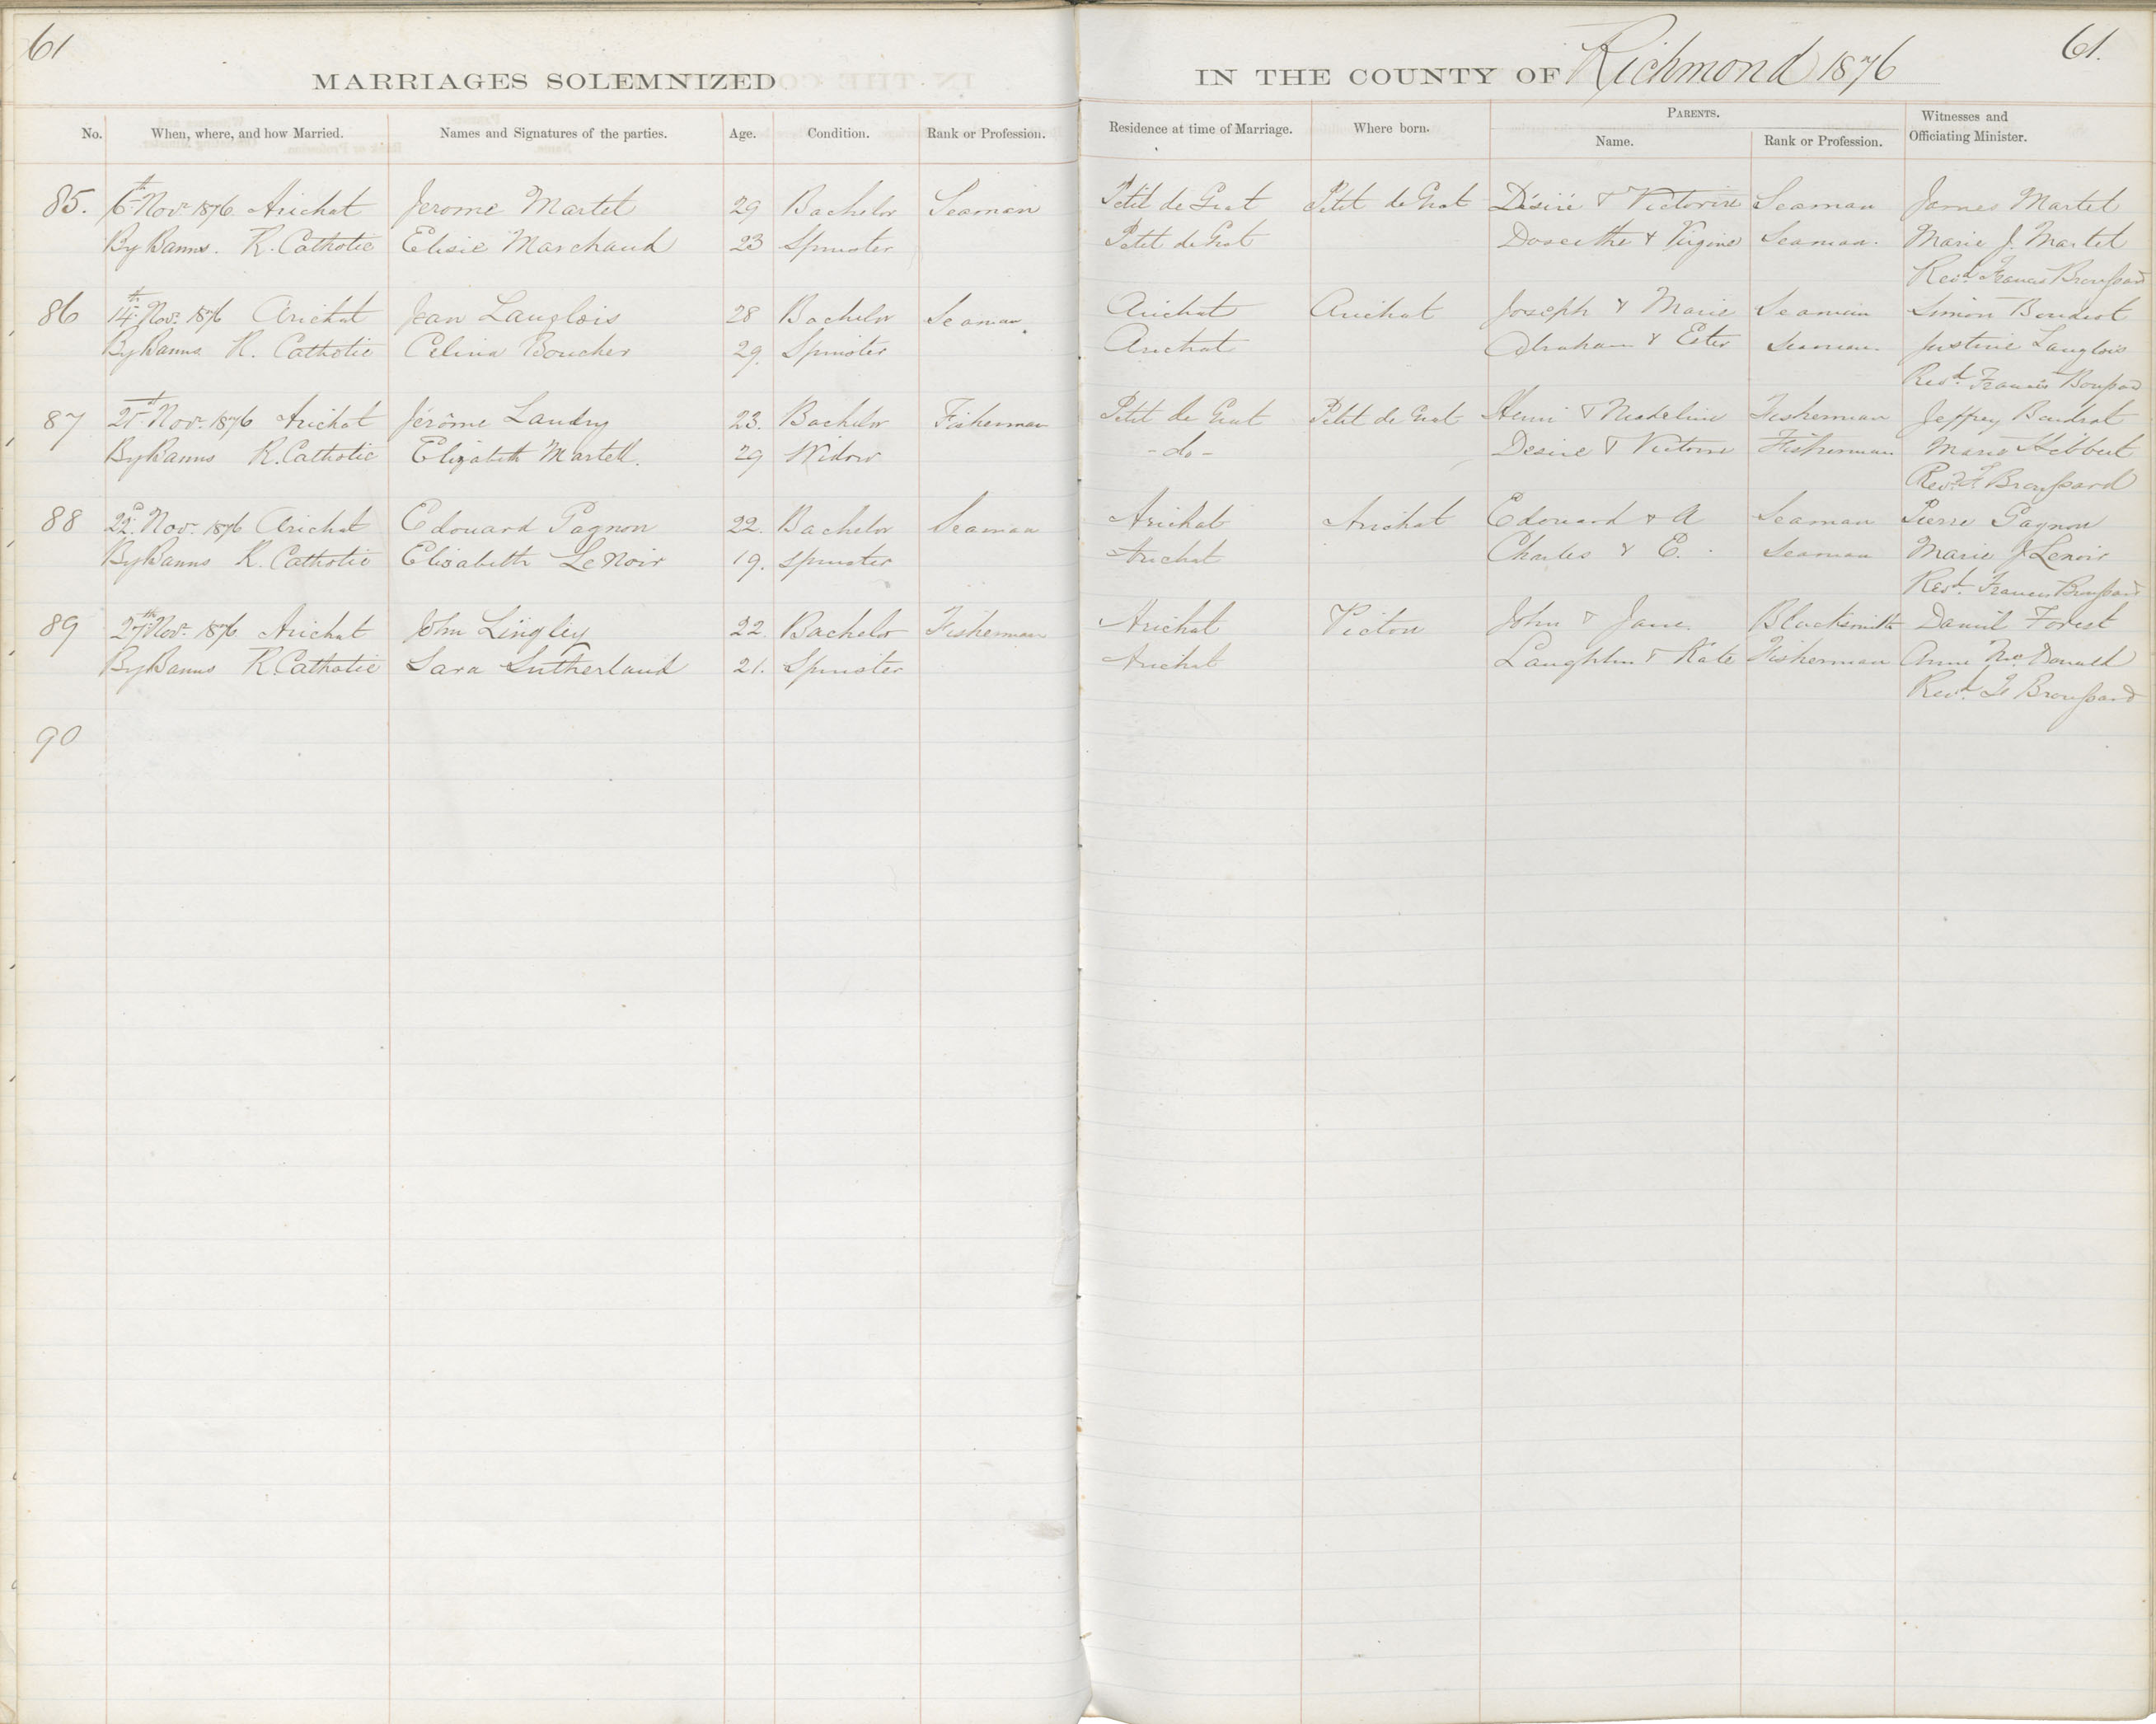 61
MARRIAGES SOLEMNIZED
IN THE COUNTY OF Richmond 1876
61.
No. When, where, and how Married. Names and Signatures of the parties. Age. Condition. Rank or Profession. Residence at time of Marriage. Where born. PARENTS. Name. Rank or Profession. Witnesses and Officiating Minister.
85. 6th Nov. 1876. Arichat Jerome Martel 29 Bachelor Seaman Petit de Grat Petit de Grat Désiré & Victorire Seaman James Martel
By Banns. R. Catholic Elisie Marchaud 23 Spinster Petit de Grat Doseithe & Virgine Seaman. Marie J. Martel
Revd. Francis Broussard
86 14th Nov. 1876 Arichat Jean Langlois 28 Bachelor Seaman Arichat Arichat Joseph & Marie Seaman Simon Boudrot
By Banns R. Catholic Celina Boucher 29. Spinster Arichat Abraham & Ester Seaman. Justine Langlois
Revd. Francis
87 21st Nov. 1876 Arichat Jérôme Landry 23. Bachelor Fisherman Petit de Grat Petit de Grat Henri & Fisherman Jeffrey Boudrot
By Banns R. Catholic Elizabeth Martell. 29 Widow - do - Desiré & Victoire Fisherman Marie Hibbert
Revd. F. Broussard
88 22d. Nov. 1876 Arichat Edouard Gagnon 22. Bachelor Seaman Arichat Arichat Edouard & A Seaman Pierre Gagnon
By Banns R. Catholic Elisabeth LeNoir 19. Spinster Arichat Charles & E. Seaman Marie J Lenoir
Revd. Francis Broussard
89 27th Nov. 1876. Arichat John Lingley 22. Bachelor Fisherman Arichat Picton John & Jane. Blacksmith Daniel Forest
By Banns R. Catholic Sara Sutherland 21. Spinster Arichat Laughlin & Kate Fisherman Anne McDonald
Revd. F Broussard
90